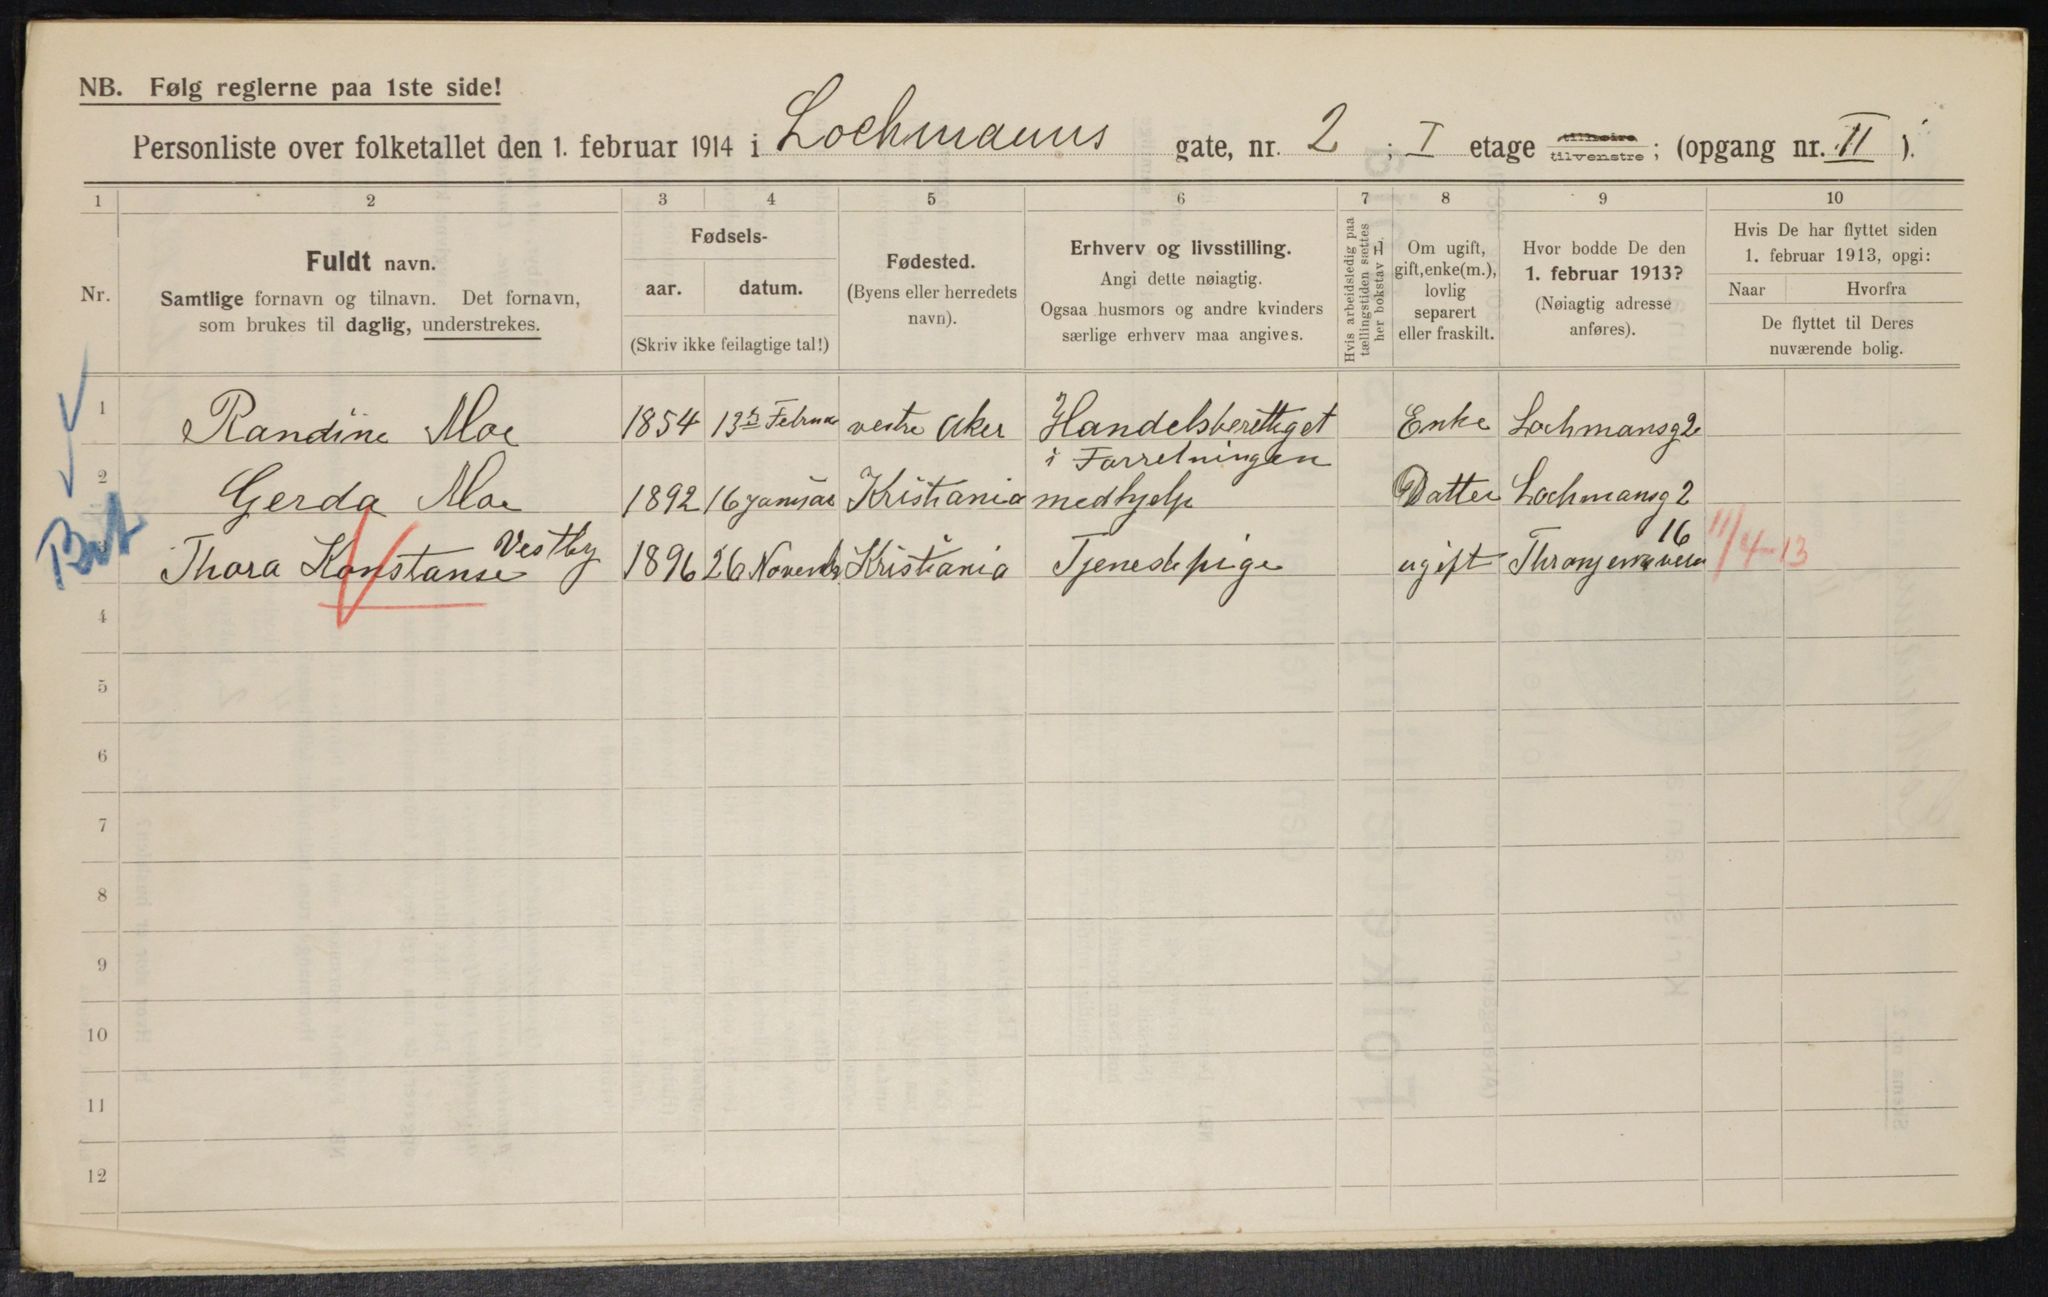 NB. Følg reglerne paa 1ste side!
Personliste over folketallet den 1. februar 1914 i Lochmanns gate, nr. 2 ; I etage tilhøire tilvenstre ; (opgang nr. II ).
1 2 3 4 5 6 7 8 9 10
Nr.
Fuldt navn.
Samtlige fornavn og tilnavn. Det fornavn,
som brukes til daglig, understrekes.
Fødsels-
aar. datum.
(Skriv ikke feilagtige tal!)
Fødested.
(Byens eller herredets
navn).
Erhverv og livsstilling.
Angi dette nøiagtig.
Ogsaa husmors og andre kvinders
særlige erhverv maa angives.
Hvis arbeidsledig paa
tællingstiden sættes
her bokstav L
Om ugift,
gift, enke(m.),
lovlig
separert
eller fraskilt.
Hvor bodde De den
1. februar 1913?
(Nøiagtig adresse
anføres).
Hvis De har flyttet siden
1. februar 1913, opgi:
Naar Hvorfra
De flyttet til Deres
nuværende bolig.
1 Randine Moe 1854 13de Februar vestre Aker Handelsberettiget Enke Lochmansg 2
i Forretningen
2 Gerda Moe 1892 16 januar Kristiania medhjelp Datter Lochmansg 2
Vestby 16
3 Thora Konstanse 1896 26 Novemb Kristiania Tjenestepige ugift 11/4-13
4
5
6
7
8
9
10
11
12